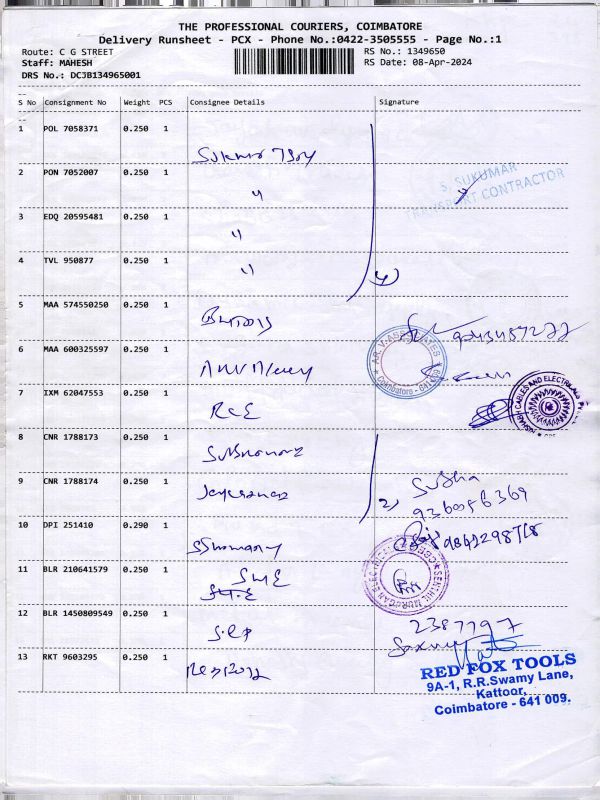 THE PROFESSIONAL COURIERS, COIMBATORE
Delivery Runsheet - PCX - Phone No.:0422-3505555 - Page No.:1
Route: C G STREET
RS No.: 1349650
Staff: MAHESH
RS Date: 08-Apr-2024
DRS No.: DCJB134965001
S No Consignment No Weight PCS Consignee Details Signature
1 POL 7058371 0.250 1
2 PON 7052007 0.250 1 "
S. SUKUMAR
TRANSPORT CONTRACTOR
3 EDQ 20595481 0.250 1 "
4 TVL 950877 0.250 1 "
4)
5 MAA 574550250 0.250 1
6 MAA 600325597 0.250 1
AR.V.ASSOCIATES
Coimbatore - 641 009
7 IXM 62047553 0.250 1 RCE
CABLES AND ELECTRICALS
8 CNR 1788173 0.250 1
9 CNR 1788174 0.250 1
2) Subha
9360056369
10 DPI 251410 0.290 1
11 BLR 210641579 0.250 1 SME
SENTHIL MURUGAN ELECTRICALS
12 BLR 1450809549 0.250 1 S.R.P
2387797
13 RKT 9603295 0.250 1
RED FOX TOOLS
9A-1, R.R.Swamy Lane,
Kattoor,
Coimbatore - 641 009.